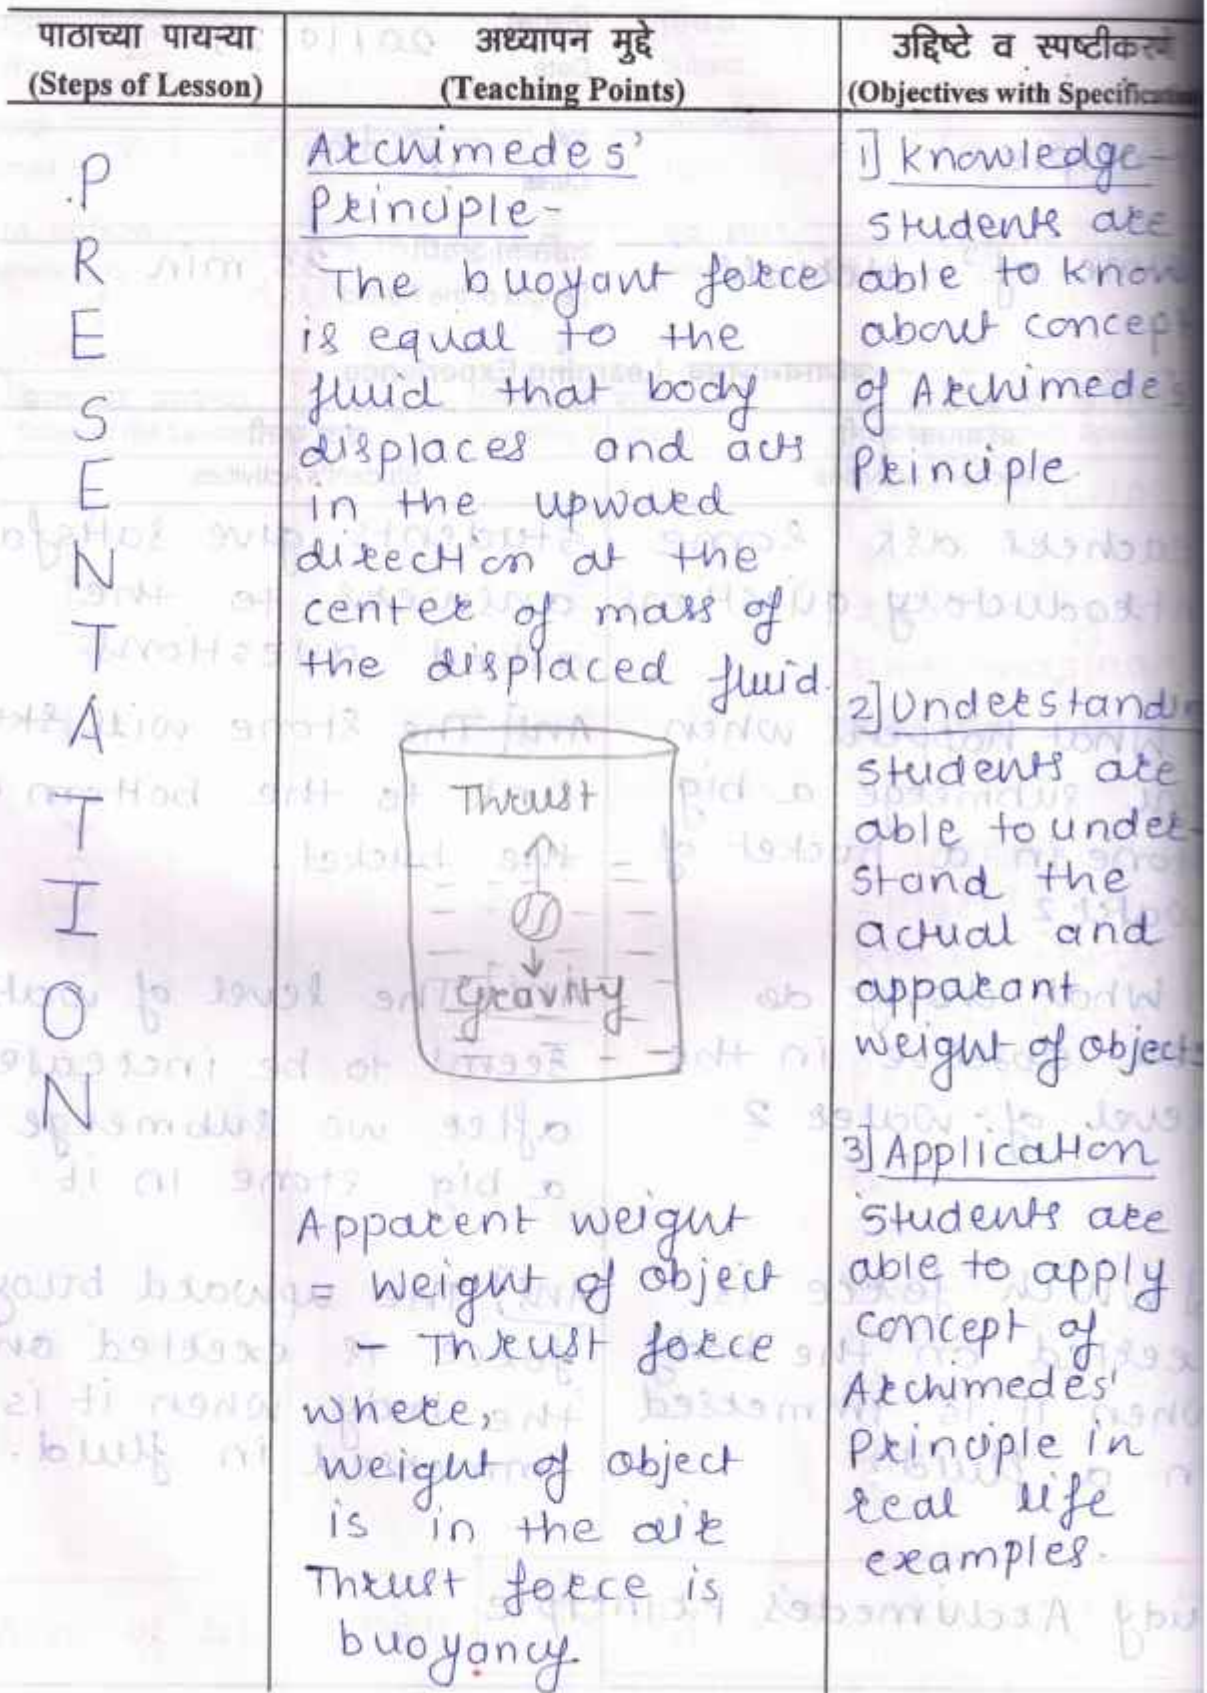 पाठाच्या पायऱ्या
(Steps of Lesson)
अध्यापन मुद्दे
(Teaching Points)
उद्दिष्टे व स्पष्टीकरणे
(Objectives with Specification
PRESENTATION
Archimedes'
Principle-
The buoyant force
is equal to the
fluid that body
displaces and acts
in the upward
direction at the
center of mass of
the displaced fluid.
Thrust
Gravity
Apparent weight
= weight of object
- Thrust force
where,
weight of object
is in the air
Thrust force is
buoyancy.
1] Knowledge-
students are
able to know
about concept
of Archimedes
Principle.
2] Understandin
students are
able to under-
stand the
actual and
apparant
weight of objects
3] Application
students are
able to apply
concept of
Archimedes'
Principle in
real life
examples.